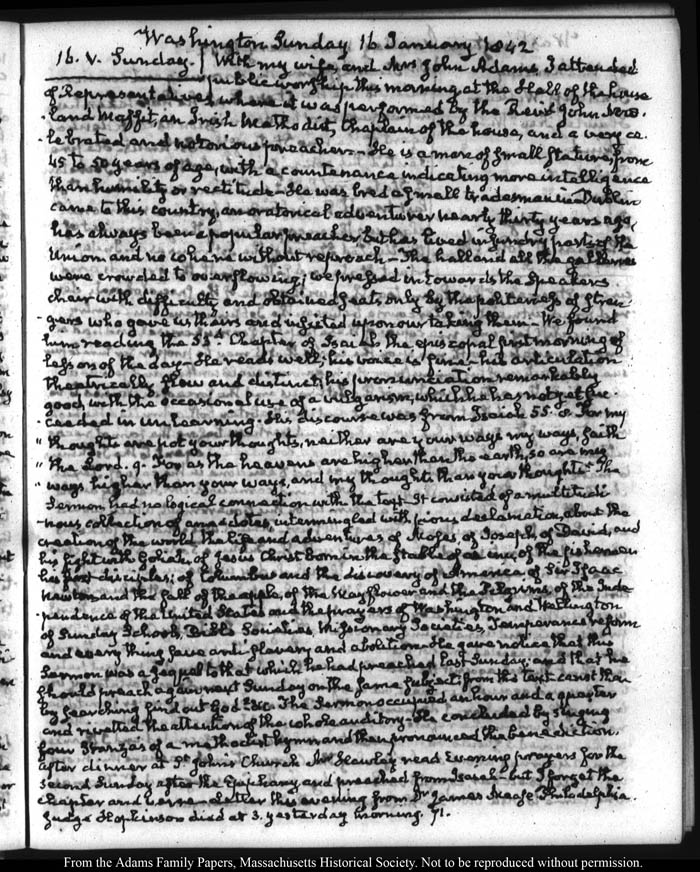 Washington Sunday 16 January 1842
16. V. Sunday. With my wife, and Mrs John Adams, I attended
public worship this morning at the Hall of the house
of Representatives, where it was performed by the Revd John New-
-land Maffit, an Irish Methodist, Chaplain of the house, and a very ce-
-lebrated and notorious preacher – He is a man of small stature, from
45 to 50 years of age, with a countenance indicating more intelligence
than humility or rectitude – He was bred a small tradesman in Dublin
came to this country, an oratorical adventurer nearly thirty years ago,
has always been a popular preacher but has lived in sundry parts of the
Union and no where without reproach – The hall and all the galleries
were crowded to overflowing; we pressed in towards the Speakers
chair with difficulty and obtained seats only by the politeness of stran-
-gers who gave us theirs and insisted upon our taking them – We found
him reading the 55th Chapter of Isaiah the episcopal first morning
lesson of the day – He reads well; his voice is fine – his articulation
theatrically slow and distinct; his pronunciation remarkably
good, with the occasional use of a vulgarism, which he has not yet suc-
-ceeded in unlearning. His discourse was from Isaiah 55. 8. For my
"thoughts are not your thoughts, neither are your ways my ways, saith
"the Lord. 9. For as the heavens are higher than the earth, so are my
"ways higher than your ways, and my thoughts than your thoughts." The
Sermon had no logical connection with the text. It consisted of a multitudi-
-nous collection of anecdotes, intermingled with pious declamation, about the
creation of the world the life and adventures of Moses, of Joseph, of David, and
his fight with Goliah, of Jesus Christ born in the stable of an inn, of the fishermen
his first disciples; of Columbus and the discovery of America, of Sir Isaac
Newton and the fall of the apple, of the Mayflower and the Pilgrims, of the Inde-
-pendence of the United States and the prayers of Washington and Wellington
of Sunday Schools, Bible Societies, Missionary Societies, Temperance reform
and every thing save anti-slavery and abolition. He gave notice that this
Sermon was a sequel to that which he had preached last Sunday; and that he
should preach again next Sunday on the same subject from the text canst thou
by searching find out God &c. The Sermon occupied an hour and a quarter
and rivetted the attention of the whole auditory – He concluded by singing
four stanzas of a methodist hymn and then pronounced the benediction.
after dinner at St. John's Church Mr Hawley read Evening prayers for the
Second Sunday after the Epiphany, and preached from Isaiah – but I forget the
chapter and verse – Letter this evening from Dr James Mease Philadelphia.
Judge Hopkinson died at 3. yesterday morning. 71.
From the Adams Family Papers, Massachusetts Historical Society. Not to be reproduced without permission.